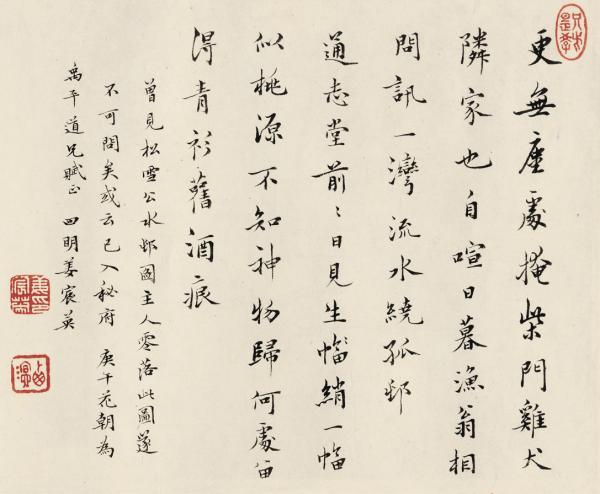 更無塵處掩柴門雞犬
隣家也自喧日暮漁翁相
問訊一灣流水繞孤邨
通志堂前〻日見生幅綃一幅
似桃源不知神物歸何處留
得青衫舊酒痕
曾見松雪公水邨圖主人零落此圖遂
不可問矣或云已入秘府 庚午花朝為
禹平道兄賦正 四明姜宸英